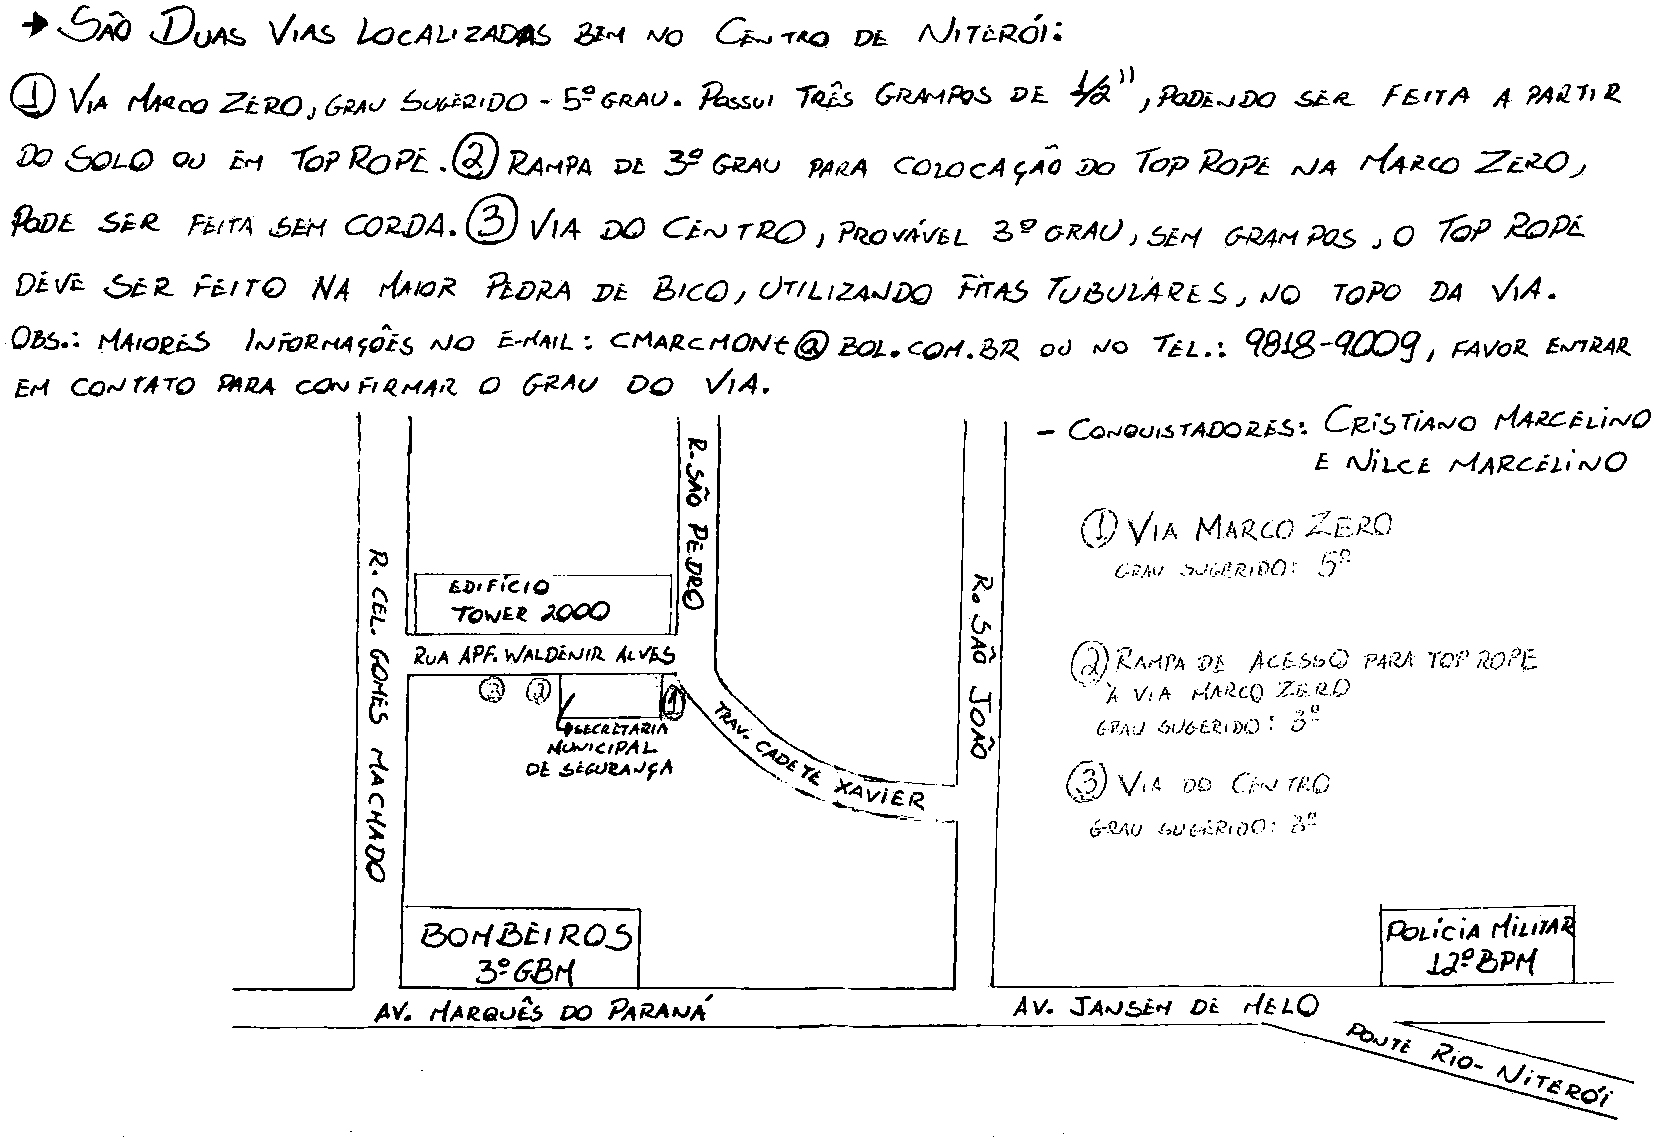 → São Duas Vias Localizadas bem no Centro de Niterói:
① Via Marco Zero, grau sugerido - 5º grau. Possui três grampos de 1/2", podendo ser feita a partir
do solo ou em Top Rope. ② Rampa de 3º grau para colocação do Top Rope na Marco Zero,
pode ser feita sem corda. ③ Via do Centro, provável 3º grau, sem grampos, o Top Rope
deve ser feito na maior pedra de bico, utilizando fitas tubulares, no topo da via.
Obs.: Maiores Informações no E-mail: cmarcmont@bol.com.br ou no Tel.: 9818-9009, favor entrar
em contato para confirmar o grau do via.
- Conquistadores: Cristiano Marcelino
e Nilce Marcelino
R. São Pedro
① Via Marco Zero
grau sugerido: 5º
R. Cel. Gomes Machado
Edifício
Tower 2000
R. São João
Rua Apf. Waldenir Alves
② Rampa de acesso para top rope
à via Marco Zero
grau sugerido: 3º
③ ② ①
Secretaria
Municipal
de Segurança
Trav. Cadete Xavier
③ Via do Centro
grau sugerido: 3º
Bombeiros
3º GBM
Polícia Militar
12º BPM
Av. Marquês do Paraná
Av. Jansen de Melo
Ponte Rio-Niterói